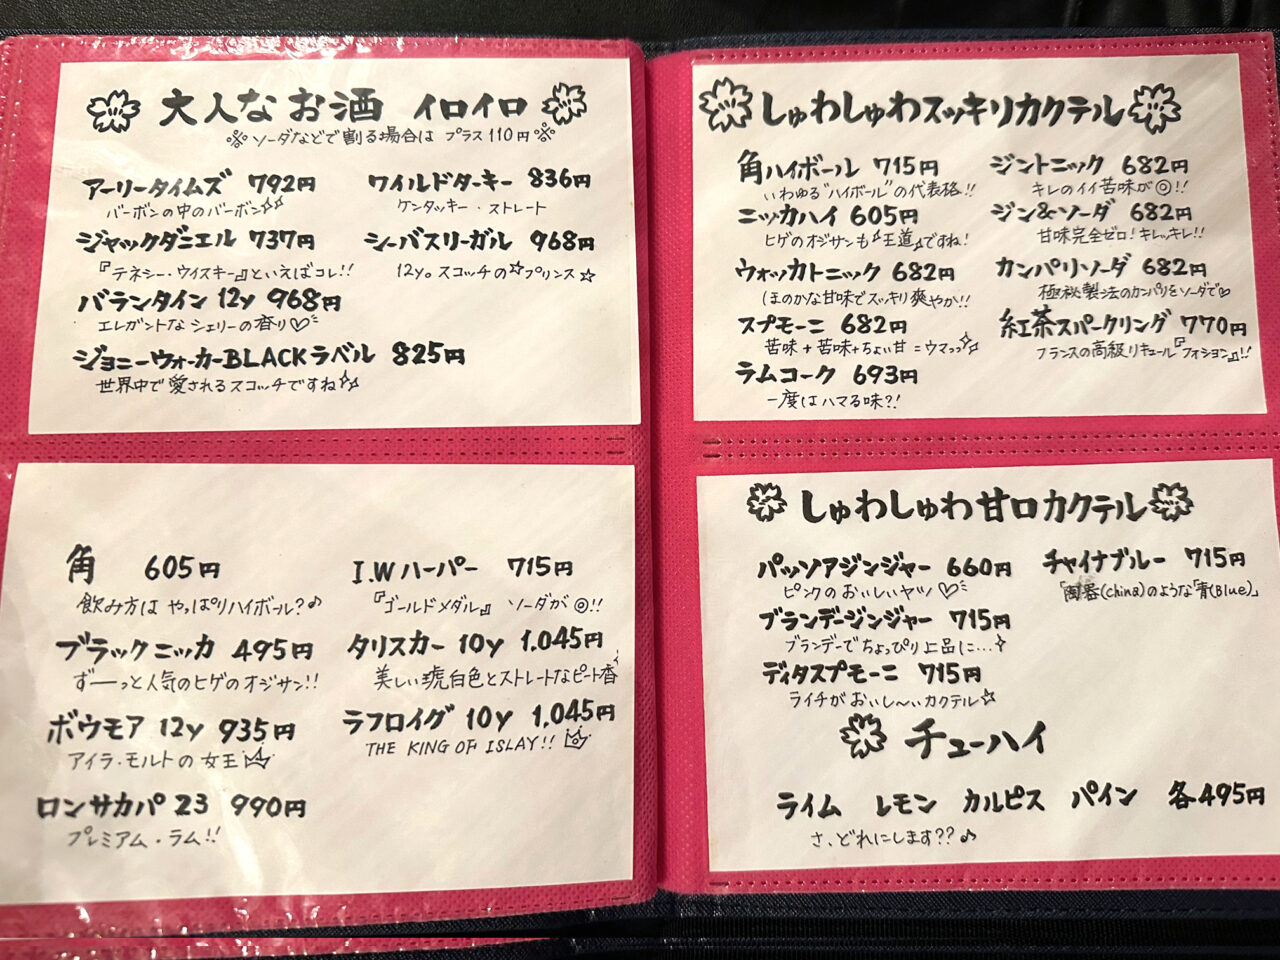 大人なお酒 イロイロ
※ソーダなどで割る場合は プラス110円※
アーリータイムズ 792円
バーボンの中のバーボン
ワイルドターキー 836円
ケンタッキー・ストレート
ジャックダニエル 737円
『テネシー・ウイスキー』といえばコレ!!
シーバスリーガル 968円
12y。スコッチの☆プリンス☆
バランタイン 12y 968円
エレガントなシェリーの香り♡
ジョニーウォーカーBLACKラベル 825円
世界中で愛されるスコッチですね
角 605円
飲み方は やっぱりハイボール?♪
I.Wハーパー 715円
『ゴールドメダル』 ソーダが◎!!
ブラックニッカ 495円
ず──っと人気のヒゲのオジサン!!
タリスカー 10y 1,045円
美しい琥珀色とストレートなピート香
ボウモア 12y 935円
アイラ・モルトの女王
ラフロイグ 10y 1,045円
THE KING OF ISLAY!!
ロンサカパ 23 990円
プレミアム・ラム!!
しゅわしゅわスッキリカクテル
角ハイボール 715円
いわゆる"ハイボール"の代表格!!
ジントニック 682円
キレのイイ苦味が◎!!
ニッカハイ 605円
ヒゲのオジサンも王道ですね!
ジン&ソーダ 682円
甘味完全ゼロ!キレッキレ!!
ウォッカトニック 682円
ほのかな甘味でスッキリ爽やか!!
カンパリソーダ 682円
極秘製法のカンパリをソーダで♡
スプモーニ 682円
苦味+苦味+ちょい甘=ウマっっ
紅茶スパークリング 770円
フランスの高級リキュール『フォション』!!
ラムコーク 693円
一度はハマる味?!
しゅわしゅわ甘口カクテル
パッソアジンジャー 660円
ピンクのおいしいヤツ♡
チャイナブルー 715円
「陶器(china)のような「青(Blue)」
ブランデージンジャー 715円
ブランデーでちょっぴり上品に…
ディタスプモーニ 715円
ライチがおいし〜いカクテル☆
チューハイ
ライム レモン カルピス パイン 各495円
さ、どれにします??♪